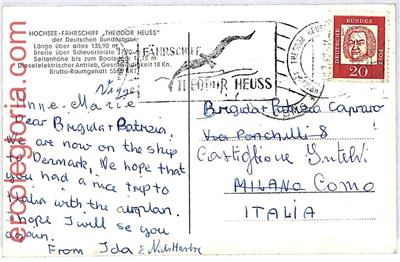 HOCHSEE-FÄHRSCHIFF „THEODOR HEUSS"
der Deutschen Bundesbahn
Länge über alles 135,90 m
Breite über Scheuerleiste
Seitenhöhe bis zum Bootsdeck
Dieselelektrischer Antrieb, Geschwindigkeit 18 Kn.
Brutto-Raumgehalt
FÄHRSCHIFF
THEODOR HEUSS
DEUTSCHE
BUNDESPOST
20
Anne-Marie
Dear Brigida + Patrizia.
We are now on the ship
to Denmark. We hope that
you had a nice trip to
Italia with the airplan.
I hope I will see you
again.
From Ida &
Brigida + Patrizia Capraro
Via Ponchielli 8
Castiglione Intelvi
MILANO Como
ITALIA
erootegloria.com